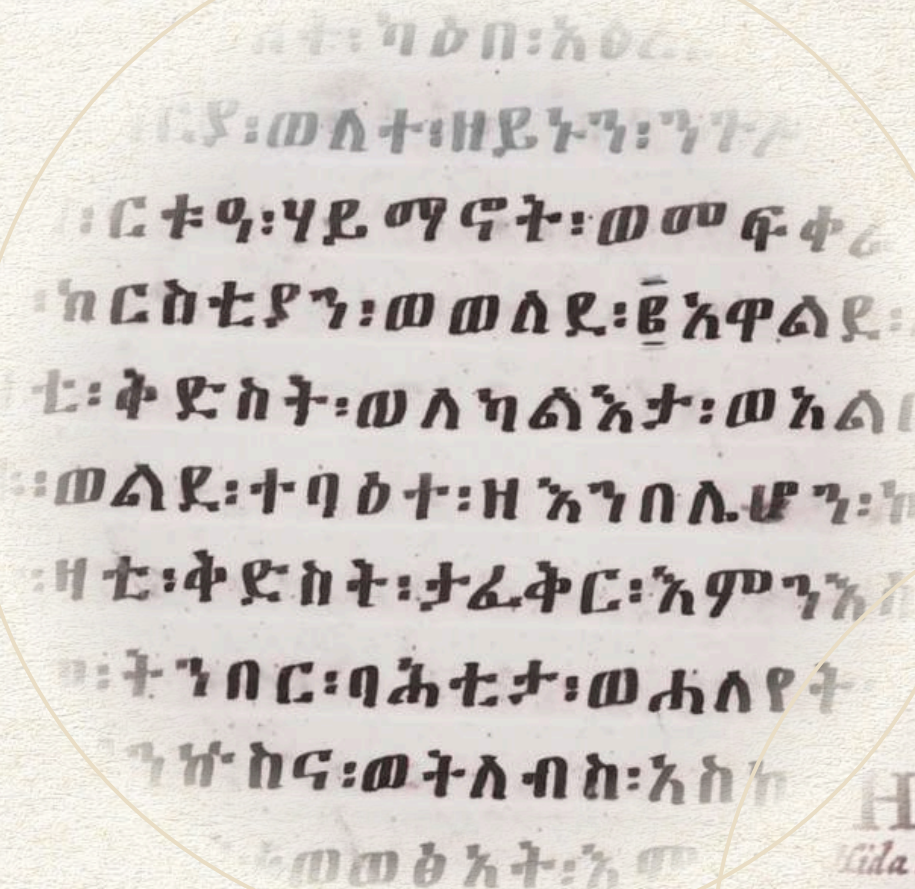 ባዕበ፡እዕ
ርያ፡ወለተ፡ዘይኑን፡ንጉሥ
፡ርቱዓ፡ሃይማኖት፡ወመፍቀሬ
፡ክርስቲያን፡ወወለደ፡፪አዋልደ፡
ቲ፡ቅድስት፡ወለካልእታ፡ወአል
፡ወልደ፡ተባዕተ፡ዘእንበሌሆን፡
፡ዛቲ፡ቅድስት፡ታፈቅር፡እምንእ
፡ትንበር፡ባሕቲታ፡ወሐለየት
ንኵስና፡ወትልብስ፡አስ
ወወፅአት፡እም
H
Hida